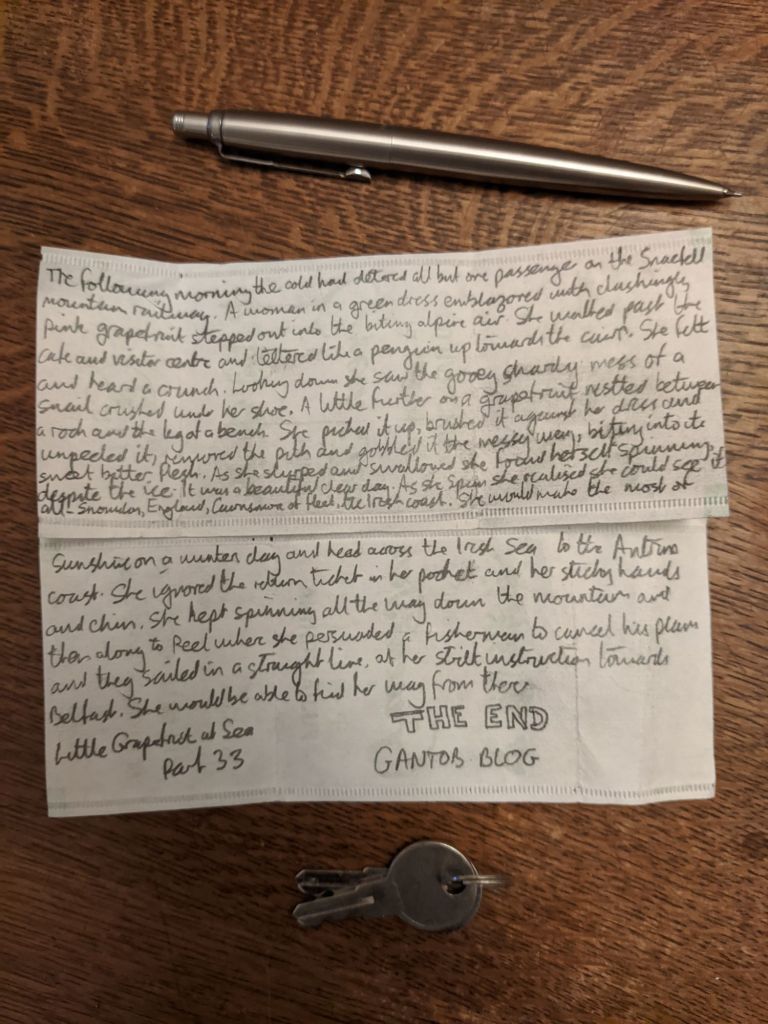 The following morning the cold had detered all but one passenger on the Snaefell
mountain railway. A woman in a green dress emblazored with clashingly
pink grapefruit stepped out into the biting alpine air. She walked past the
cafe and visitor centre and tettered like a penguin up towards the cairn. She felt
and heard a crunch. Looking down she saw the gooey shardy mess of a
snail crushed under her shoe. A little further on a grapefruit nestled between
a rock and the leg of a bench. She picked it up, brushed it against her dress and
unpeeled it, removed the pith and gobbled it the messy way, biting into its
sweet better flesh. As she slurped and swallowed she found herself spinning,
despite the ice. It was a beautiful clear day. As she spun she realised she could see it
all - Snowdon, England, Cairnsmore of Fleet, the Irish coast. She would make the most of
sunshine on a winter day and head across the Irish Sea to the Antrim
coast. She ignored the return ticket in her pocket and her sticky hands
and chin. She kept spinning all the way down the mountain and
then along to Peel where she persuaded a fisherman to cancel his plans
and they sailed in a straight line, at her strict instruction towards
Belfast. She would be able to find her way from there
THE END
Little Grapefruit at Sea
Part 33
GANTOB BLOG